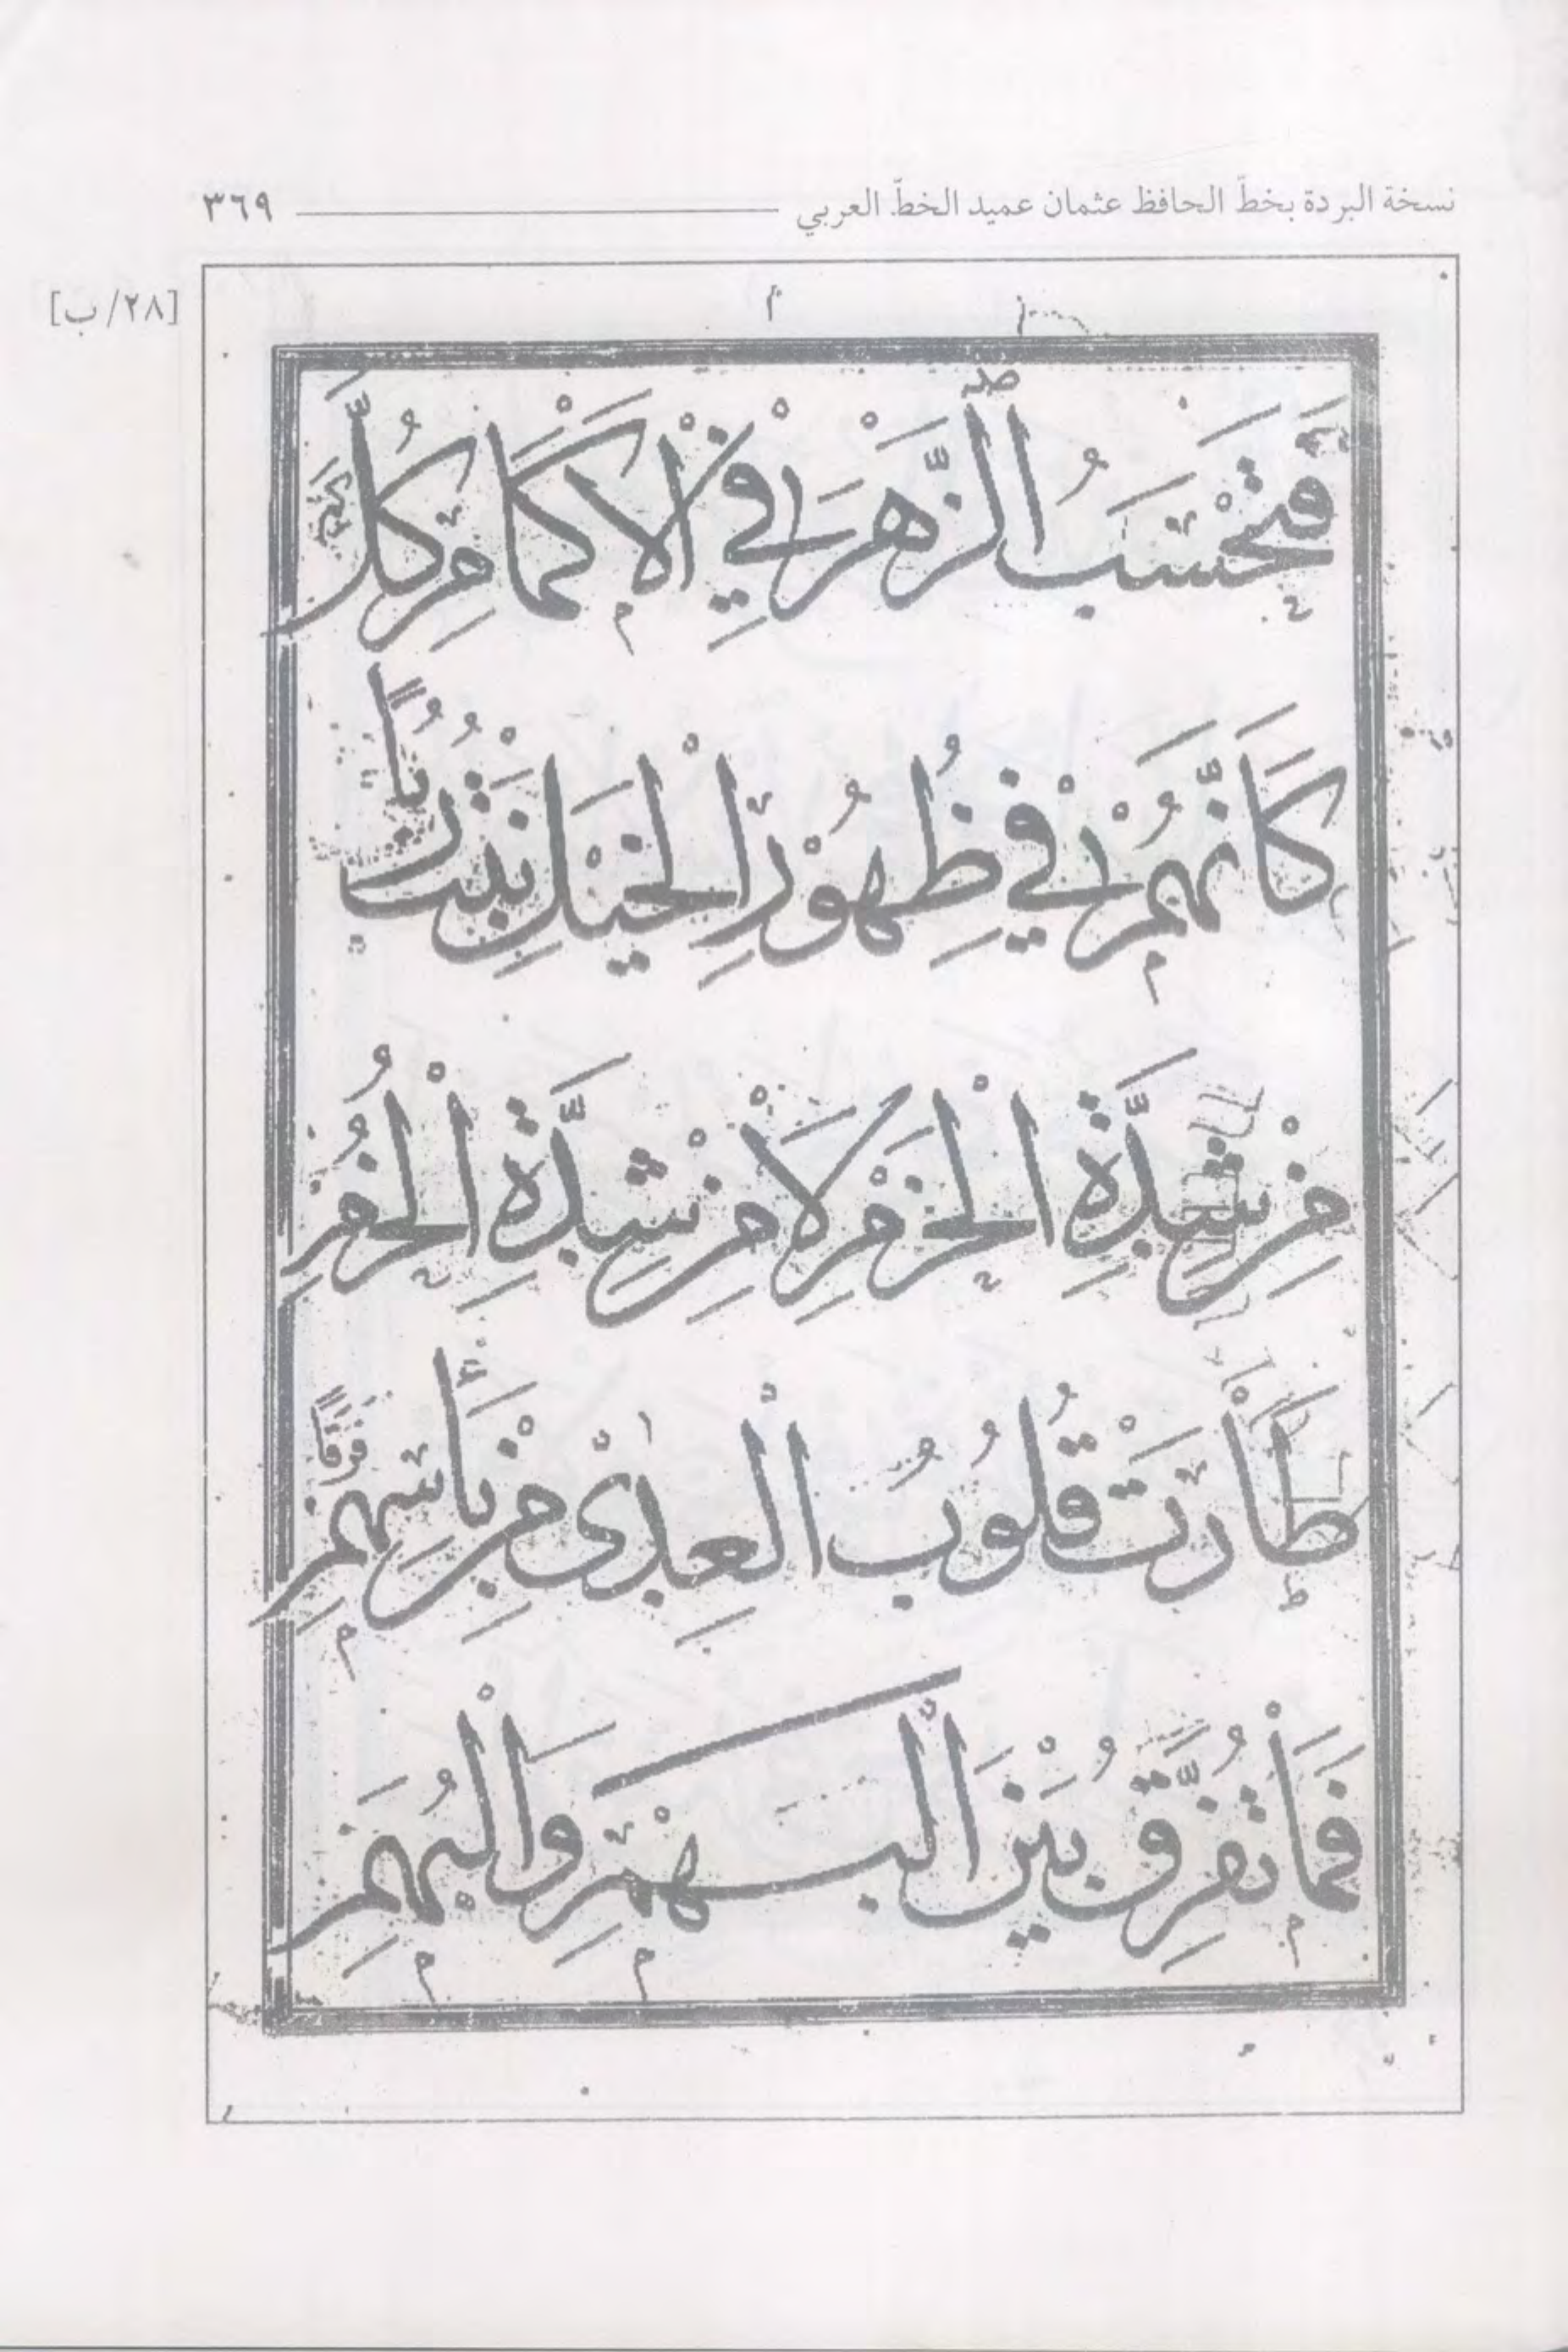 نسخة البردة بخطّ الحافظ عثمان عميد الخطّ العربي ٣٦٩
[٢٨/ب]
فَتَحْسَبُ الزَّهْرَ فِي الْأَكْمَامِ كُلَّ كَمِي
كَأَنَّهُمْ فِي ظُهُورِ الْخَيْلِ نَبْتُ رُبًا
مِنْ شِدَّةِ الْحَزْمِ لَا مِنْ شِدَّةِ الْحُزُمِ
طَارَتْ قُلُوبُ الْعِدٰى مِنْ بَأْسِهِمْ فَرَقًا
فَمَا تُفَرِّقُ بَيْنَ الْبَهْمِ وَالْبُهَمِ